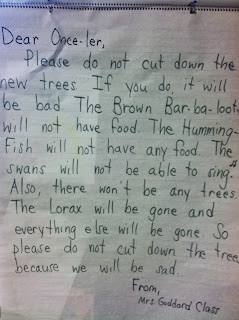 Dear Once-ler,
Please do not cut down the
new trees. If you do, it will
be bad. The Brown Bar-ba-loots
will not have food. The Humming-
Fish will not have any food. The
swans will not be able to sing.
Also, there won't be any trees.
The Lorax will be gone and
everything else will be gone. So
please do not cut down the tree
because we will be sad.
From,
Mrs. Goddard Class